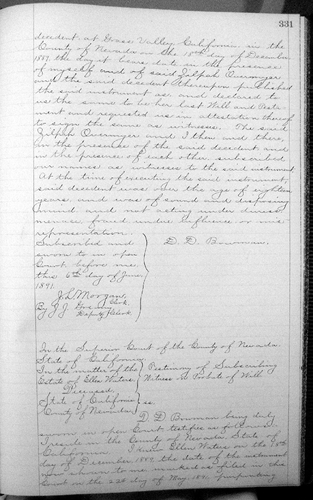 331
decedent at Grass Valley California in the
County of Nevada on the 10th day of December
1889 the day it bears date in the presence
of myself and of said Zilpah Overmyer
and the said decedent thereupon published
the said instrument as and declared to
us the same to be her last Will and Testa
ment and requested us in attestation thereof
to sign the same as witnesses. The said
Zilpah Overmyer and I then and there
in the presence of the said decedent and
in the presence of each other subscribed
our names as witnesses to the said instrument
At the time of executing the said instrument
said decedent was over the age of eighteen
years and was of sound and disposing
mind and not acting under duress
menace fraud undue Influence or mis
representation.
Subscribed and
sworn to in open
Court before me
this 5th day of June
1891
D. D. Bowman.
J. L. Morgan,
Clerk.
By J. J.
Deputy Clerk.
In the Superior Court of the County of Nevada
State of California
In the matter of the Testimony of Subscribing
Estate of Ellen Waters Witness on Probate of Will
Deceased
State of California ss
County of Nevada
D. D. Bowman being duly
sworn in open Court testifies as follows
I reside in the County of Nevada State of
California I knew Ellen Waters on the 10th
day of December 1889 the date of the instrument
now shown to me marked as filed in this
Court on the 22d day of May 1891 purporting